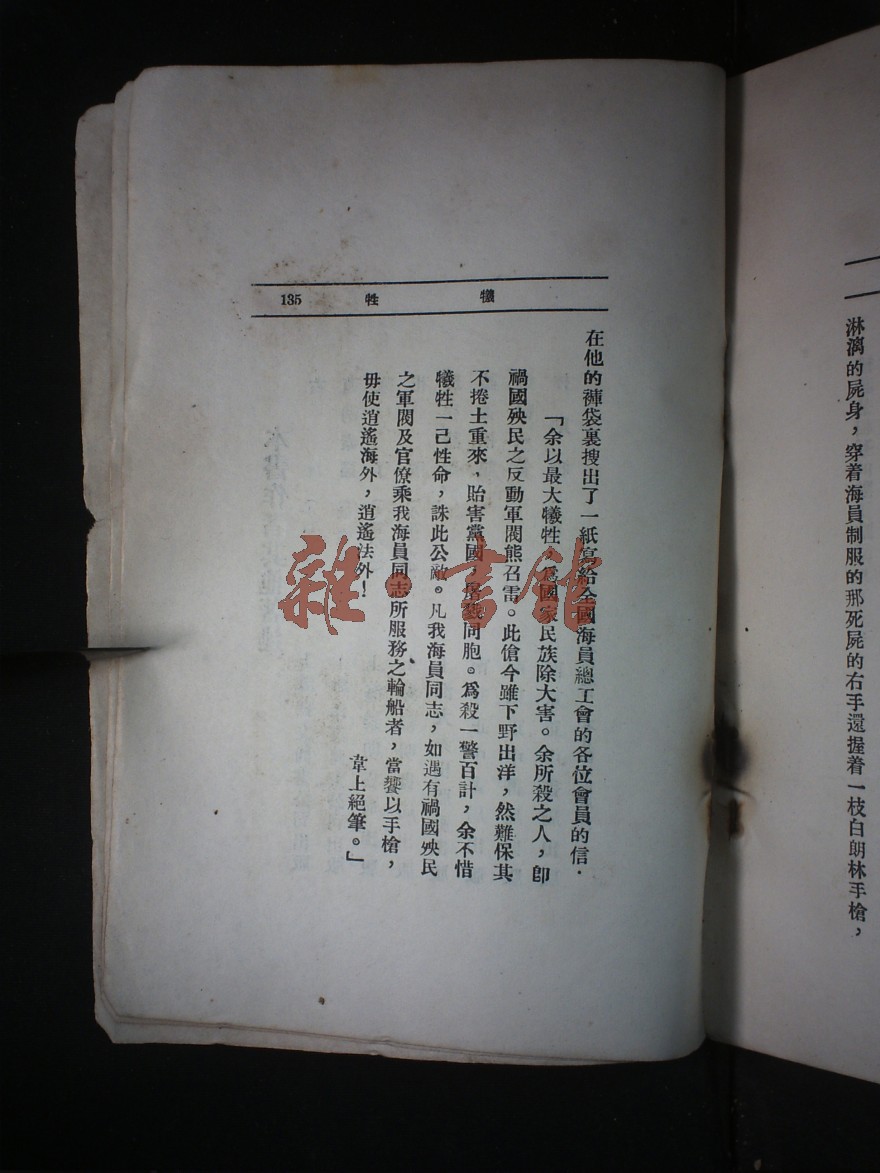 淋漓的屍身，穿着海員制服的那死屍的右手還握着一枝白朗林手槍，
犧牲
135
在他的褲袋裏搜出了一紙寫給全國海員總工會的各位會員的信．
「余以最大犧牲，爲國家民族除大害。余所殺之人，卽
禍國殃民之反動軍閥熊召雷。此傖今雖下野出洋，然難保其
不捲土重來，貽害黨國，同胞。爲殺一警百計，余不惜
犧牲一己性命，誅此公敵。凡我海員同志，如遇有禍國殃民
之軍閥及官僚乘我海員同志所服務之輪船者，當饗以手槍，
毋使逍遙海外，逍遙法外！
韋上絕筆。」
雜·書館